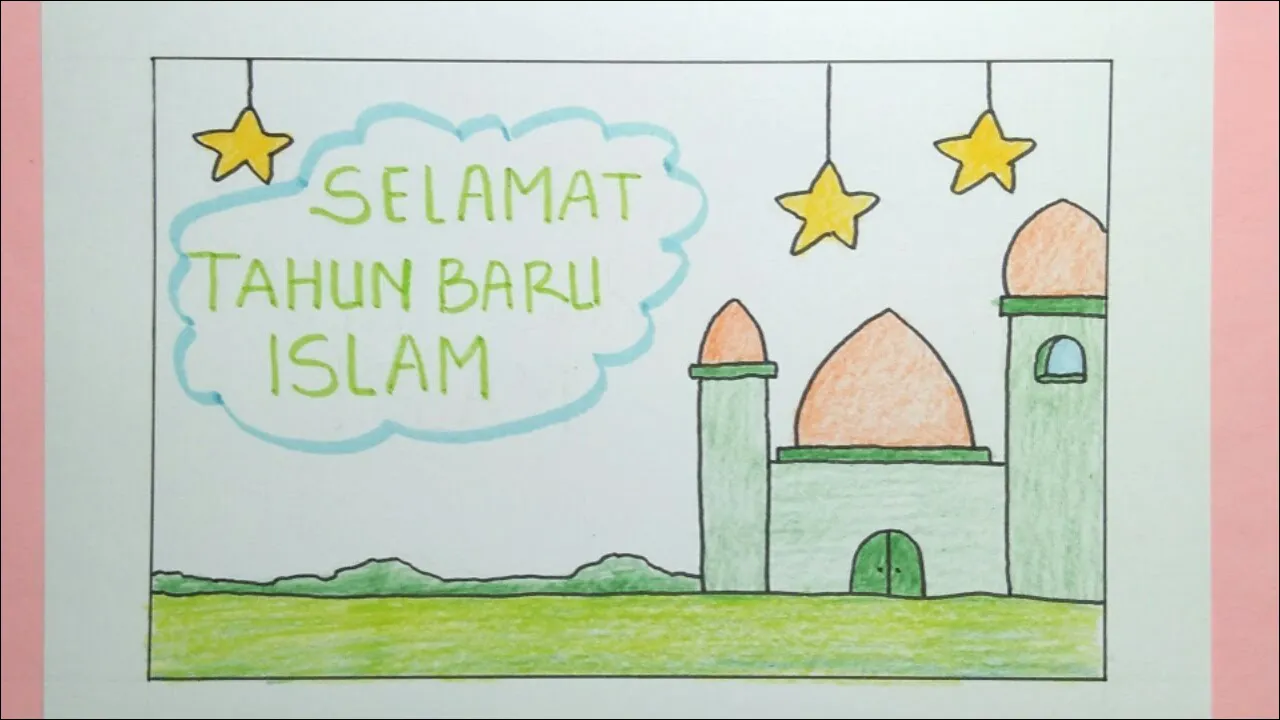 SELAMAT
TAHUN BARU
ISLAM